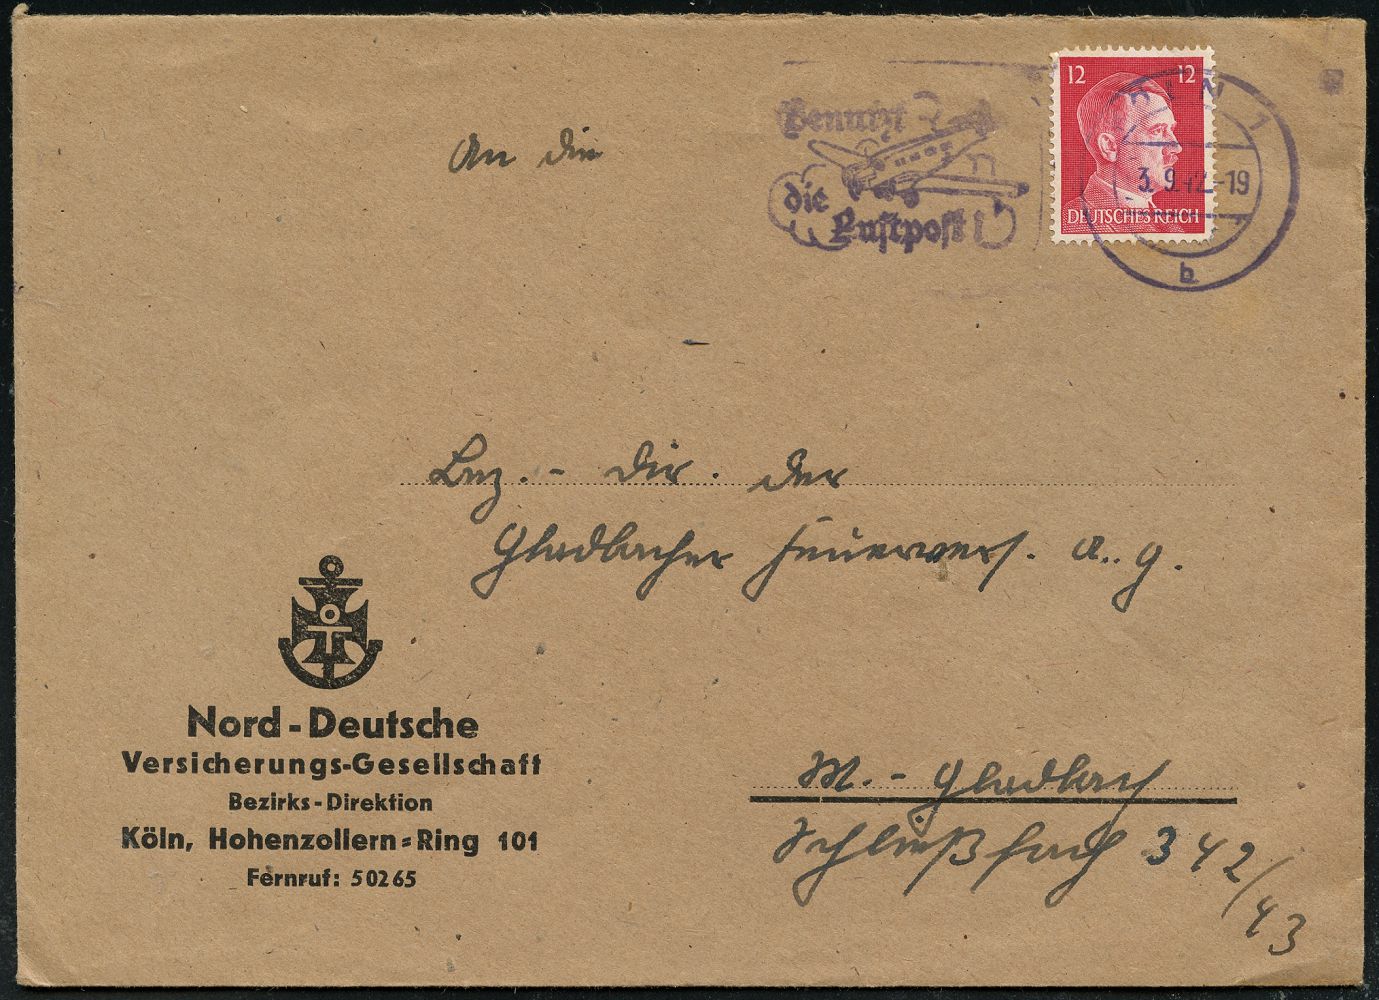 12 12
DEUTSCHES REICH
3. 9. 42-19
b
Benutzt
die
Luftpost!
An die
Bez.- Dir. der
Gladbacher Feuervers. A. G.
M.- Gladbach
Schließfach 342/43
Nord-Deutsche
Versicherungs-Gesellschaft
Bezirks-Direktion
Köln, Hohenzollern-Ring 101
Fernruf: 50265